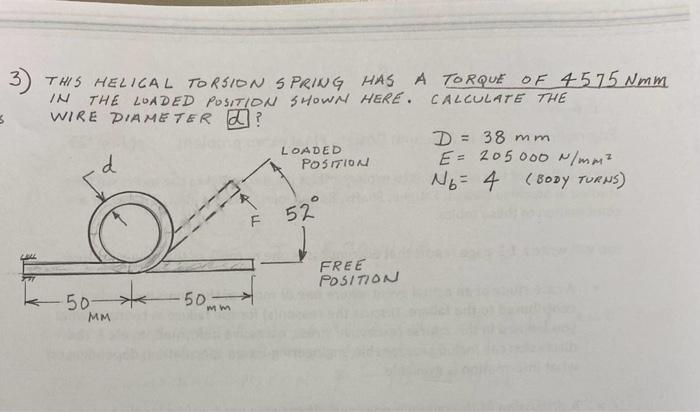 3) THIS HELICAL TORSION SPRING HAS A TORQUE OF 4575 Nmm
IN THE LOADED POSITION SHOWN HERE. CALCULATE THE
WIRE DIAMETER d ?
D = 38 mm
E = 205000 N/mm²
Nb = 4 (BODY TURNS)
d
LOADED
POSITION
F
52°
FREE
POSITION
50
MM
50
mm